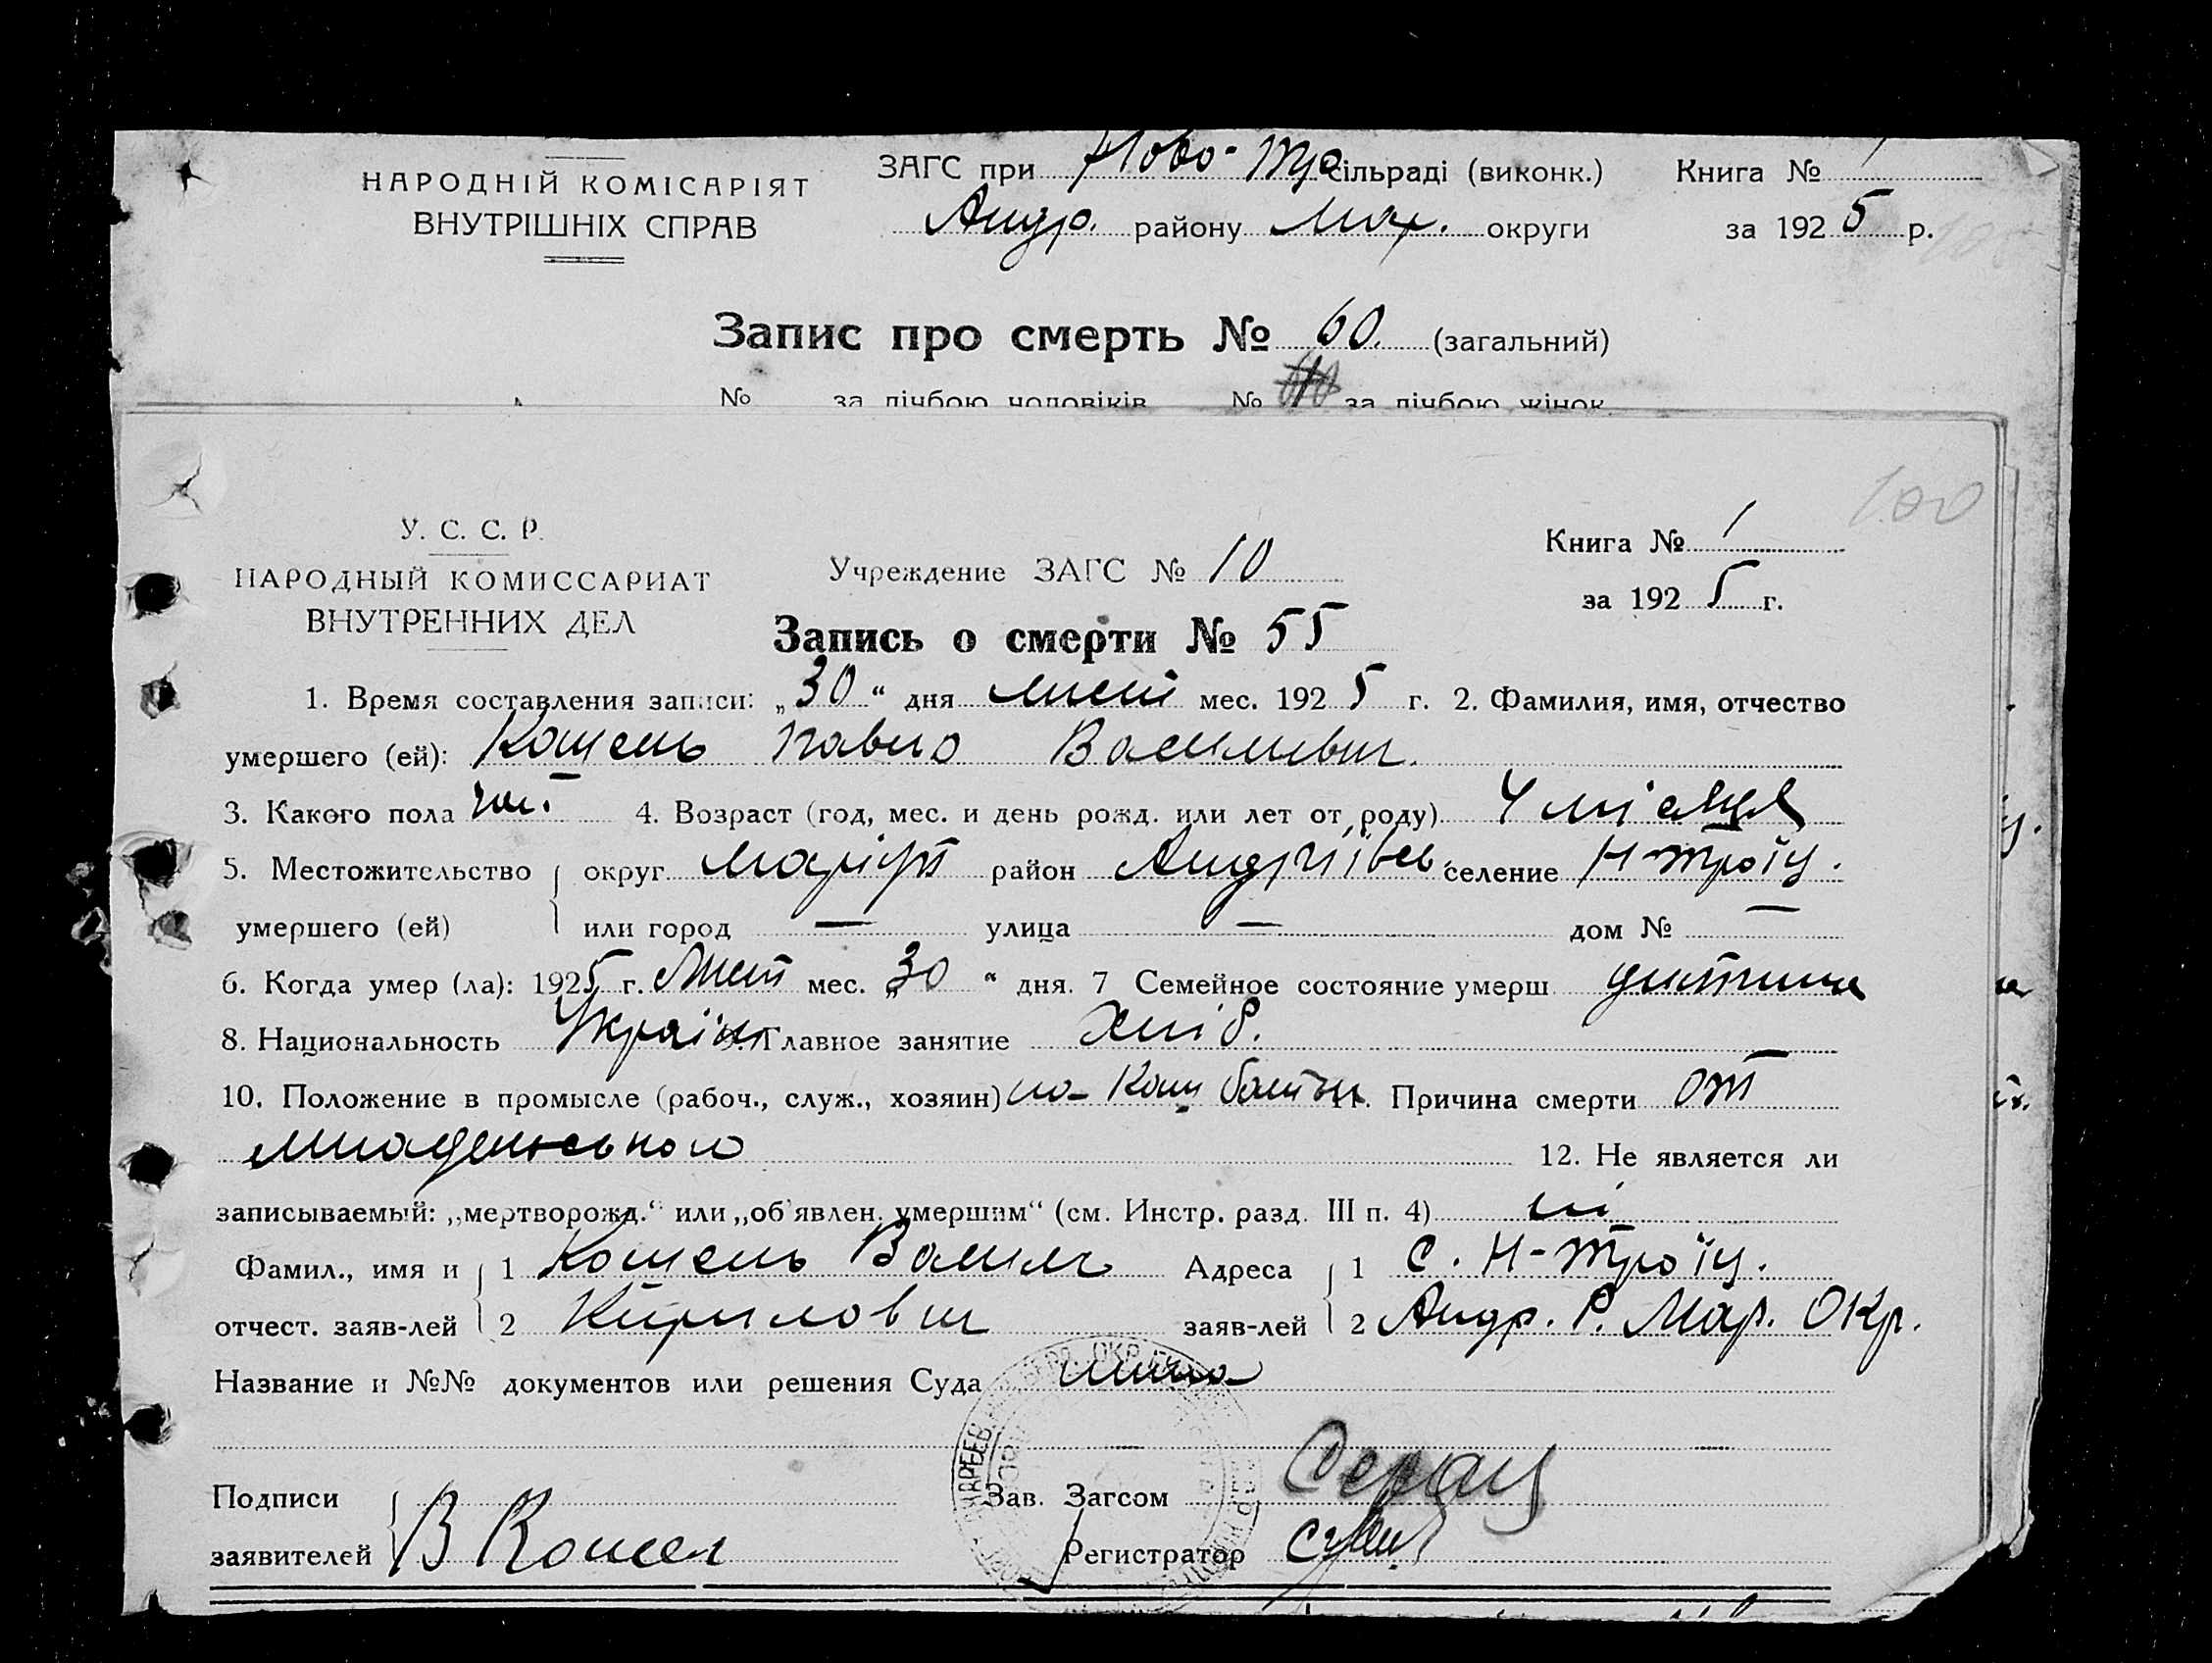 НАРОДНІЙ КОМІСАРІЯТ
ВНУТРІШНІХ СПРАВ
ЗАГС при Ново-Тро сільраді (виконк.)
Книга № 1
Андр. району Мар. округи
за 1925 р.
Запис про смерть № 60. (загальний)
№ за лічбою чоловіків № за лічбою жінок
100
У. С. С. Р.
НАРОДНЫЙ КОМИССАРИАТ
ВНУТРЕННИХ ДЕЛ
Учреждение ЗАГС № 10
Книга № 1
за 1925 г.
Запись о смерти № 55
1. Время составления записи: „30“ дня лист мес. 1925 г. 2. Фамилия, имя, отчество
умершего (ей): Кошель Павло Васильвич.
3. Какого пола чол. 4. Возраст (год, мес. и день рожд. или лет от роду) 4 місяця
5. Местожительство округ Маріуп район Андріївс. селение Н-Троїц.
умершего (ей) или город — улица — дом № —
6. Когда умер (ла): 1925 г. Лист мес. „30“ дня. 7 Семейное состояние умерш дитина
8. Национальность Україн 9. Главное занятие Хліб.
10. Положение в промысле (рабоч., служ., хозяин) на- Кош батьк 11. Причина смерти от
младенського 12. Не является ли
записываемый: „мертворожд.“ или „об'явлен. умершим“ (см. Инстр. разд. III п. 4) ні
Фамил., имя и 1 Кошель Василь Адреса 1 с. Н-Троїц.
отчест. заяв-лей 2 Кирилович заяв-лей 2 Андр. Р. Мар. Окр.
Название и №№ документов или решения Суда нима
Подписи Зав. Загсом
заявителей В Кошел Регистратор